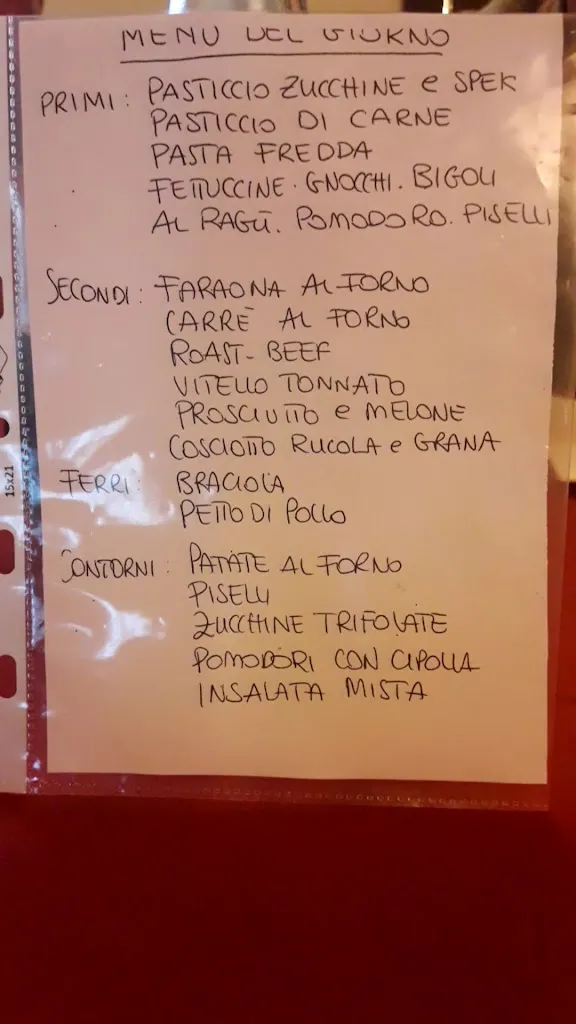 MENU DEL GIORNO
PRIMI: PASTICCIO ZUCCHINE e SPEK
PASTICCIO DI CARNE
PASTA FREDDA
FETTUCCINE. GNOCCHI. BIGOLI
AL RAGÚ. POMODORO. PISELLI
SECONDI: FARAONA AL FORNO
CARRÈ AL FORNO
ROAST-BEEF
VITELLO TONNATO
PROSCIUTTO e MELONE
COSCIOTTO RUCOLA e GRANA
FERRI: BRACIOLA
PETTO DI POLLO
CONTORNI: PATATE AL FORNO
PISELLI
ZUCCHINE TRIFOLATE
POMODORI CON CIPOLLA
INSALATA MISTA
15x21